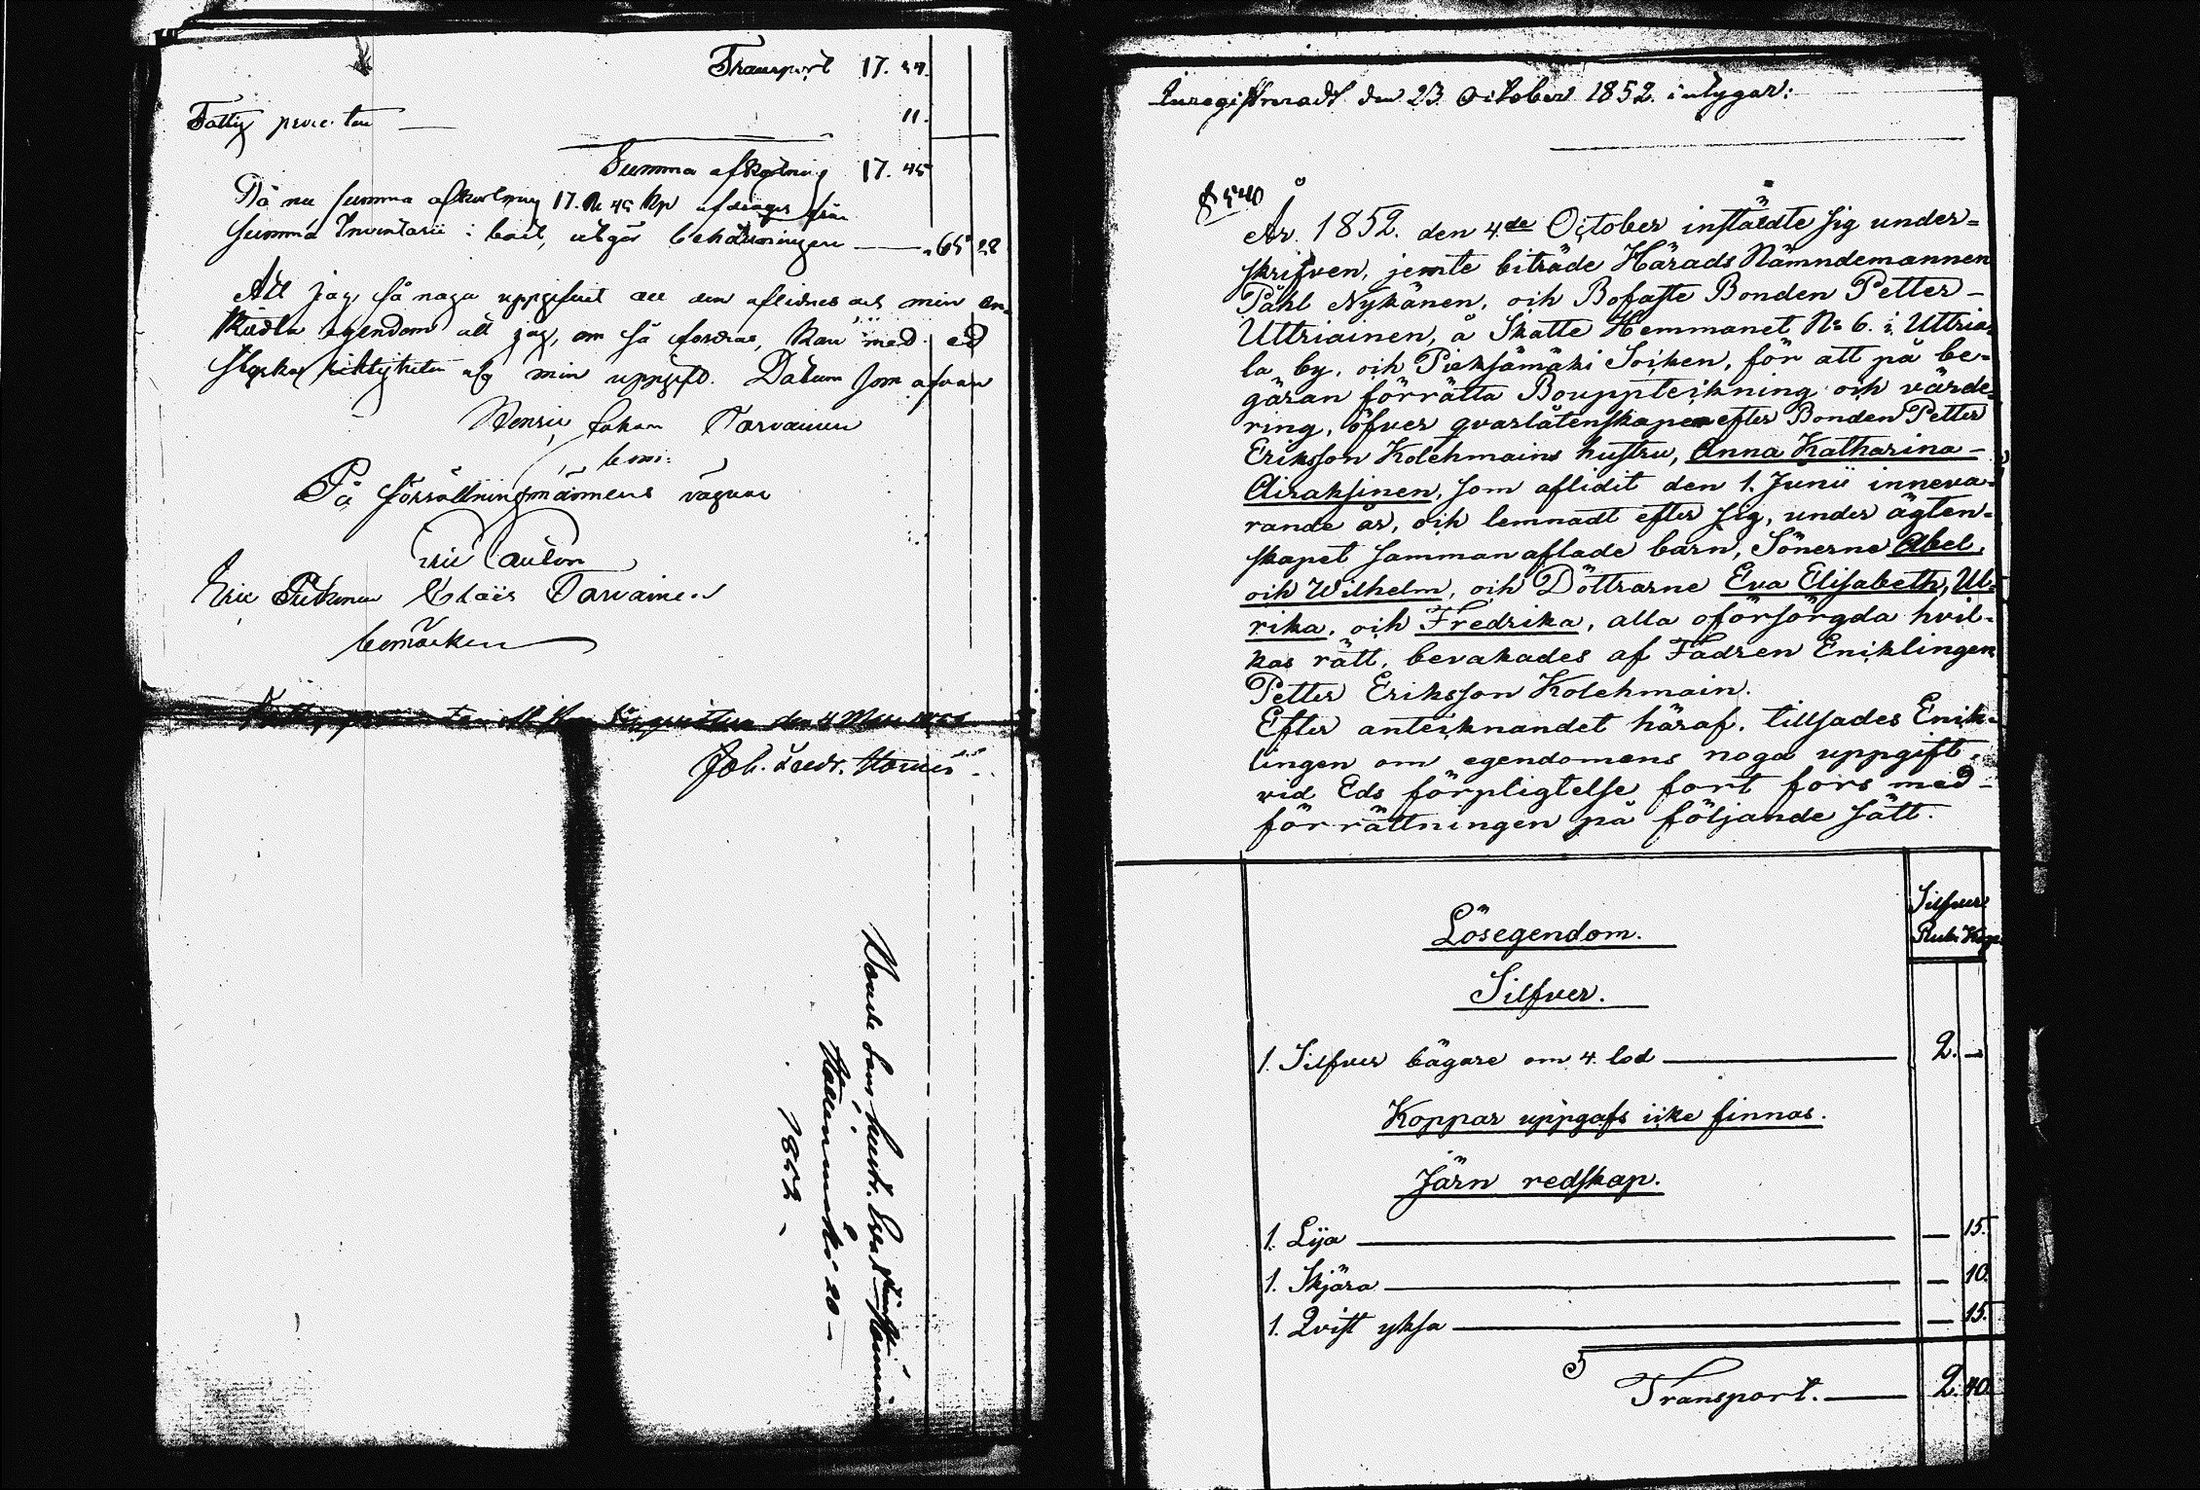 Transport 17. 34.
Fattig procenten — 11.
Summa afkortning 17. 45
Då nu summa afkortning 17. R 45 Kp afdrages från
Summa Inventarii : boet, utgör behållningen — 65 28
Att jag så noga uppgifvit all den aflidnes och min en-
skildta egendom att jag, om så fordras, kan med ed
styrka riktigheten af min uppgift. Datum som ofvan
Henric Johan Tarvainen
På förrättningsmännens vägnar
Eric Paulon
Eric Pitkänen Claës Tarvainen
bomärken
den 4 Mars
Joh.
hustr.
20 –
1852 –
Inregistreradt den 23 October 1852. intygar:
§ 540
År 1852. den 4.de October instäldte sig under=
skrifven, jemte biträde Härads Nämndemannen
Påhl Nykänen, och Bofaste Bonden Petter –
Uttriainen, å Skatte Hemmanet No 6. i Uttria-
la by, och Pieksämäki Socken, för att på be-
gäran förrätta Bouppteckning och värde-
ring, öfver qvarlåtenskapen efter Bonden Petter
Eriksson Kolehmains hustru, Anna Katharina –
Airaksinen, som aflidit den 1. Junii inneva-
rande år, och lemnadt efter sig, under ägten-
skapet samman aflade barn, Sönerne Abel,
och Wilhelm, och Döttrarne Eva Elisabeth, Ul-
rika, och Fredrika, alla oförsörgda hvil-
kas rätt, bevakades af Fadren Enklingen
Petter Eriksson Kolehmain.
Efter antecknandet häraf, tillsades Enk-
lingen om egendomens noga uppgift,
vid Eds förpligtelse fort fors med –
förrättningen på följande sätt.
Silfver
Rub. Kop.
Lösegendom.
Silfver.
1. Silfver bägare om 4. lod — 2. —
Koppar uppgafs icke finnas.
Järn redskap.
1. Lija — — 15.
1. Skjära — — 10.
1. Qvist yksa — — 15.
Transport. — 2. 40.